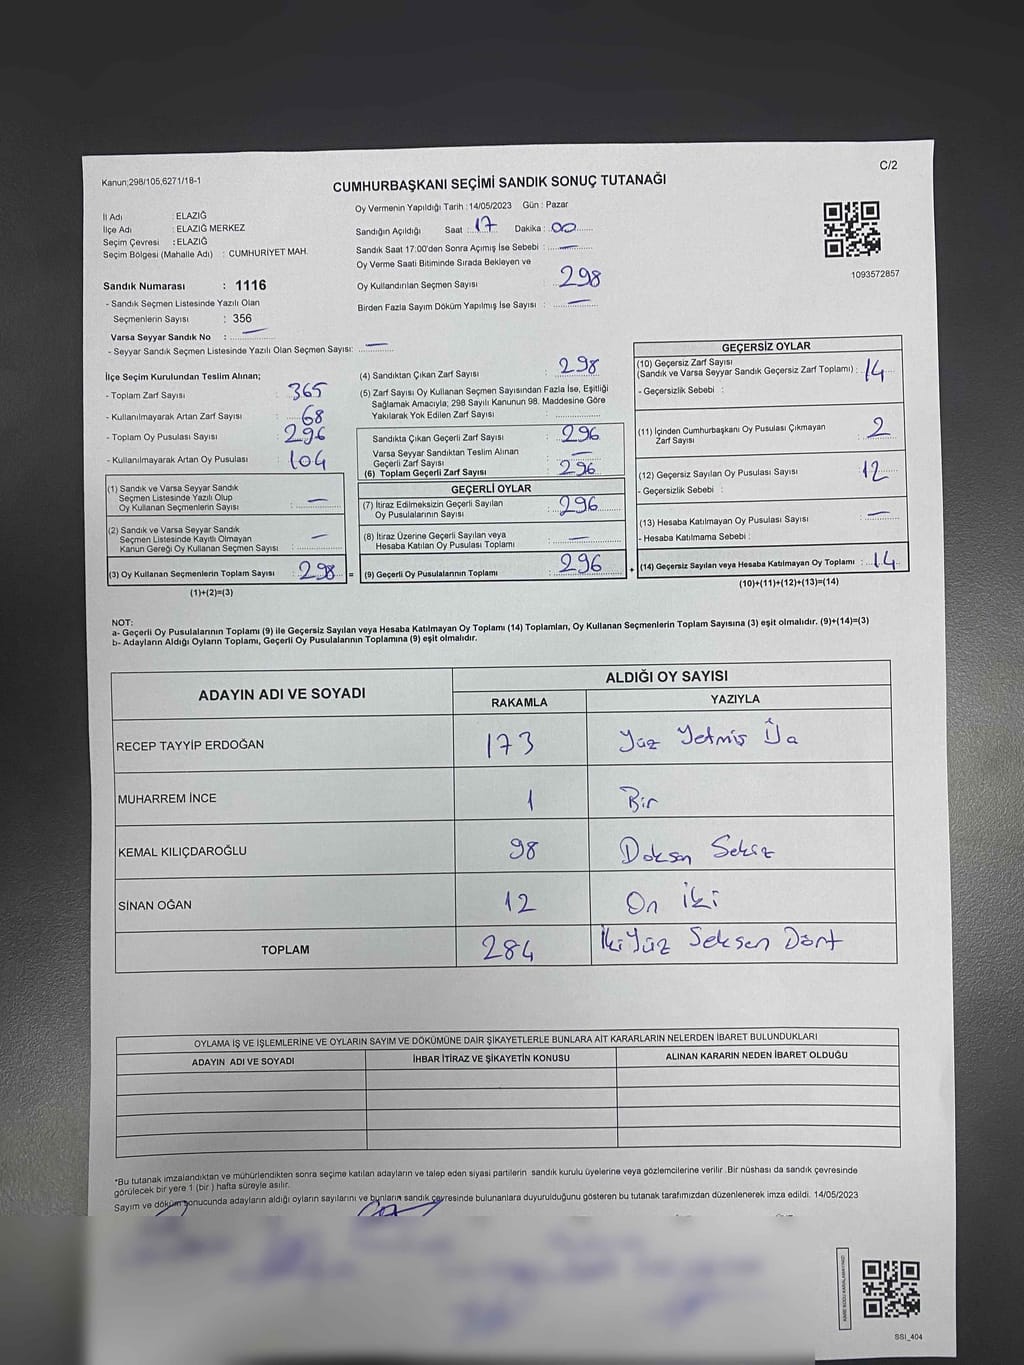 C/2
Kanun;298/105,6271/18-1
CUMHURBAŞKANI SEÇİMİ SANDIK SONUÇ TUTANAĞI
İl Adı : ELAZIĞ
İlçe Adı : ELAZIĞ MERKEZ
Seçim Çevresi : ELAZIĞ
Seçim Bölgesi (Mahalle Adı) : CUMHURİYET MAH.
Sandık Numarası : 1116
- Sandık Seçmen Listesinde Yazılı Olan
Seçmenlerin Sayısı : 356
Varsa Seyyar Sandık No : —
- Seyyar Sandık Seçmen Listesinde Yazılı Olan Seçmen Sayısı: —
Oy Vermenin Yapıldığı Tarih :14/05/2023 Gün : Pazar
Sandığın Açıldığı Saat : 17 Dakika : 00
Sandık Saat 17:00'den Sonra Açımış İse Sebebi : —
Oy Verme Saati Bitiminde Sırada Bekleyen ve
Oy Kullandırılan Seçmen Sayısı 298
Birden Fazla Sayım Döküm Yapılmış İse Sayısı : —
1093572857
İlçe Seçim Kurulundan Teslim Alınan;
- Toplam Zarf Sayısı : 365
- Kullanılmayarak Artan Zarf Sayısı : 68
- Toplam Oy Pusulası Sayısı : 296
- Kullanılmayarak Artan Oy Pusulası : 104
(1) Sandık ve Varsa Seyyar Sandık
Seçmen Listesinde Yazılı Olup
Oy Kullanan Seçmenlerin Sayısı : —
(2) Sandık ve Varsa Seyyar Sandık
Seçmen Listesinde Kayıtlı Olmayan
Kanun Gereği Oy Kullanan Seçmen Sayısı : —
(3) Oy Kullanan Seçmenlerin Toplam Sayısı : 298 =
(1)+(2)=(3)
(4) Sandıktan Çıkan Zarf Sayısı : 298
(5) Zarf Sayısı Oy Kullanan Seçmen Sayısından Fazla İse, Eşitliği
Sağlamak Amacıyla; 298 Sayılı Kanunun 98. Maddesine Göre
Yakılarak Yok Edilen Zarf Sayısı :
Sandıkta Çıkan Geçerli Zarf Sayısı : 296
Varsa Seyyar Sandıktan Teslim Alınan
Geçerli Zarf Sayısı : —
(6) Toplam Geçerli Zarf Sayısı : 296
GEÇERLİ OYLAR
(7) İtiraz Edilmeksizin Geçerli Sayılan
Oy Pusulalarının Sayısı : 296
(8) İtiraz Üzerine Geçerli Sayılan veya
Hesaba Katılan Oy Pusulası Toplamı : —
(9) Geçerli Oy Pusulalarının Toplamı : 296 +
GEÇERSİZ OYLAR
(10) Geçersiz Zarf Sayısı
(Sandık ve Varsa Seyyar Sandık Geçersiz Zarf Toplamı) : 14
- Geçersizlik Sebebi :
(11) İçinden Cumhurbaşkanı Oy Pusulası Çıkmayan
Zarf Sayısı : 2
(12) Geçersiz Sayılan Oy Pusulası Sayısı : 12
- Geçersizlik Sebebi :
(13) Hesaba Katılmayan Oy Pusulası Sayısı : —
- Hesaba Katılmama Sebebi :
(14) Geçersiz Sayılan veya Hesaba Katılmayan Oy Toplamı : 14
(10)+(11)+(12)+(13)=(14)
NOT:
a- Geçerli Oy Pusulalarının Toplamı (9) ile Geçersiz Sayılan veya Hesaba Katılmayan Oy Toplamı (14) Toplamları, Oy Kullanan Seçmenlerin Toplam Sayısına (3) eşit olmalıdır. (9)+(14)=(3)
b- Adayların Aldığı Oyların Toplamı, Geçerli Oy Pusulalarının Toplamına (9) eşit olmalıdır.
ADAYIN ADI VE SOYADI ALDIĞI OY SAYISI
RAKAMLA YAZIYLA
RECEP TAYYİP ERDOĞAN 173 Yüz Yetmiş
MUHARREM İNCE 1 Bir
KEMAL KILIÇDAROĞLU 98 Doksan Sekiz
SİNAN OĞAN 12 On İki
TOPLAM 284 İki Yüz Seksen Dört
OYLAMA İŞ VE İŞLEMLERİNE VE OYLARIN SAYIM VE DÖKÜMÜNE DAİR ŞİKAYETLERLE BUNLARA AİT KARARLARIN NELERDEN İBARET BULUNDUKLARI
ADAYIN ADI VE SOYADI İHBAR İTİRAZ VE ŞİKAYETİN KONUSU ALINAN KARARIN NEDEN İBARET OLDUĞU
*Bu tutanak imzalandıktan ve mühürlendikten sonra seçime katılan adayların ve talep eden siyasi partilerin sandık kurulu üyelerine veya gözlemcilerine verilir .Bir nüshası da sandık çevresinde
görülecek bir yere 1 (bir ) hafta süreyle asılır.
Sayım ve döküm sonucunda adayların aldığı oyların sayılarını ve bunların sandık çevresinde bulunanlara duyurulduğunu gösteren bu tutanak tarafımızdan düzenlenerek imza edildi. 14/05/2023
SSI_404